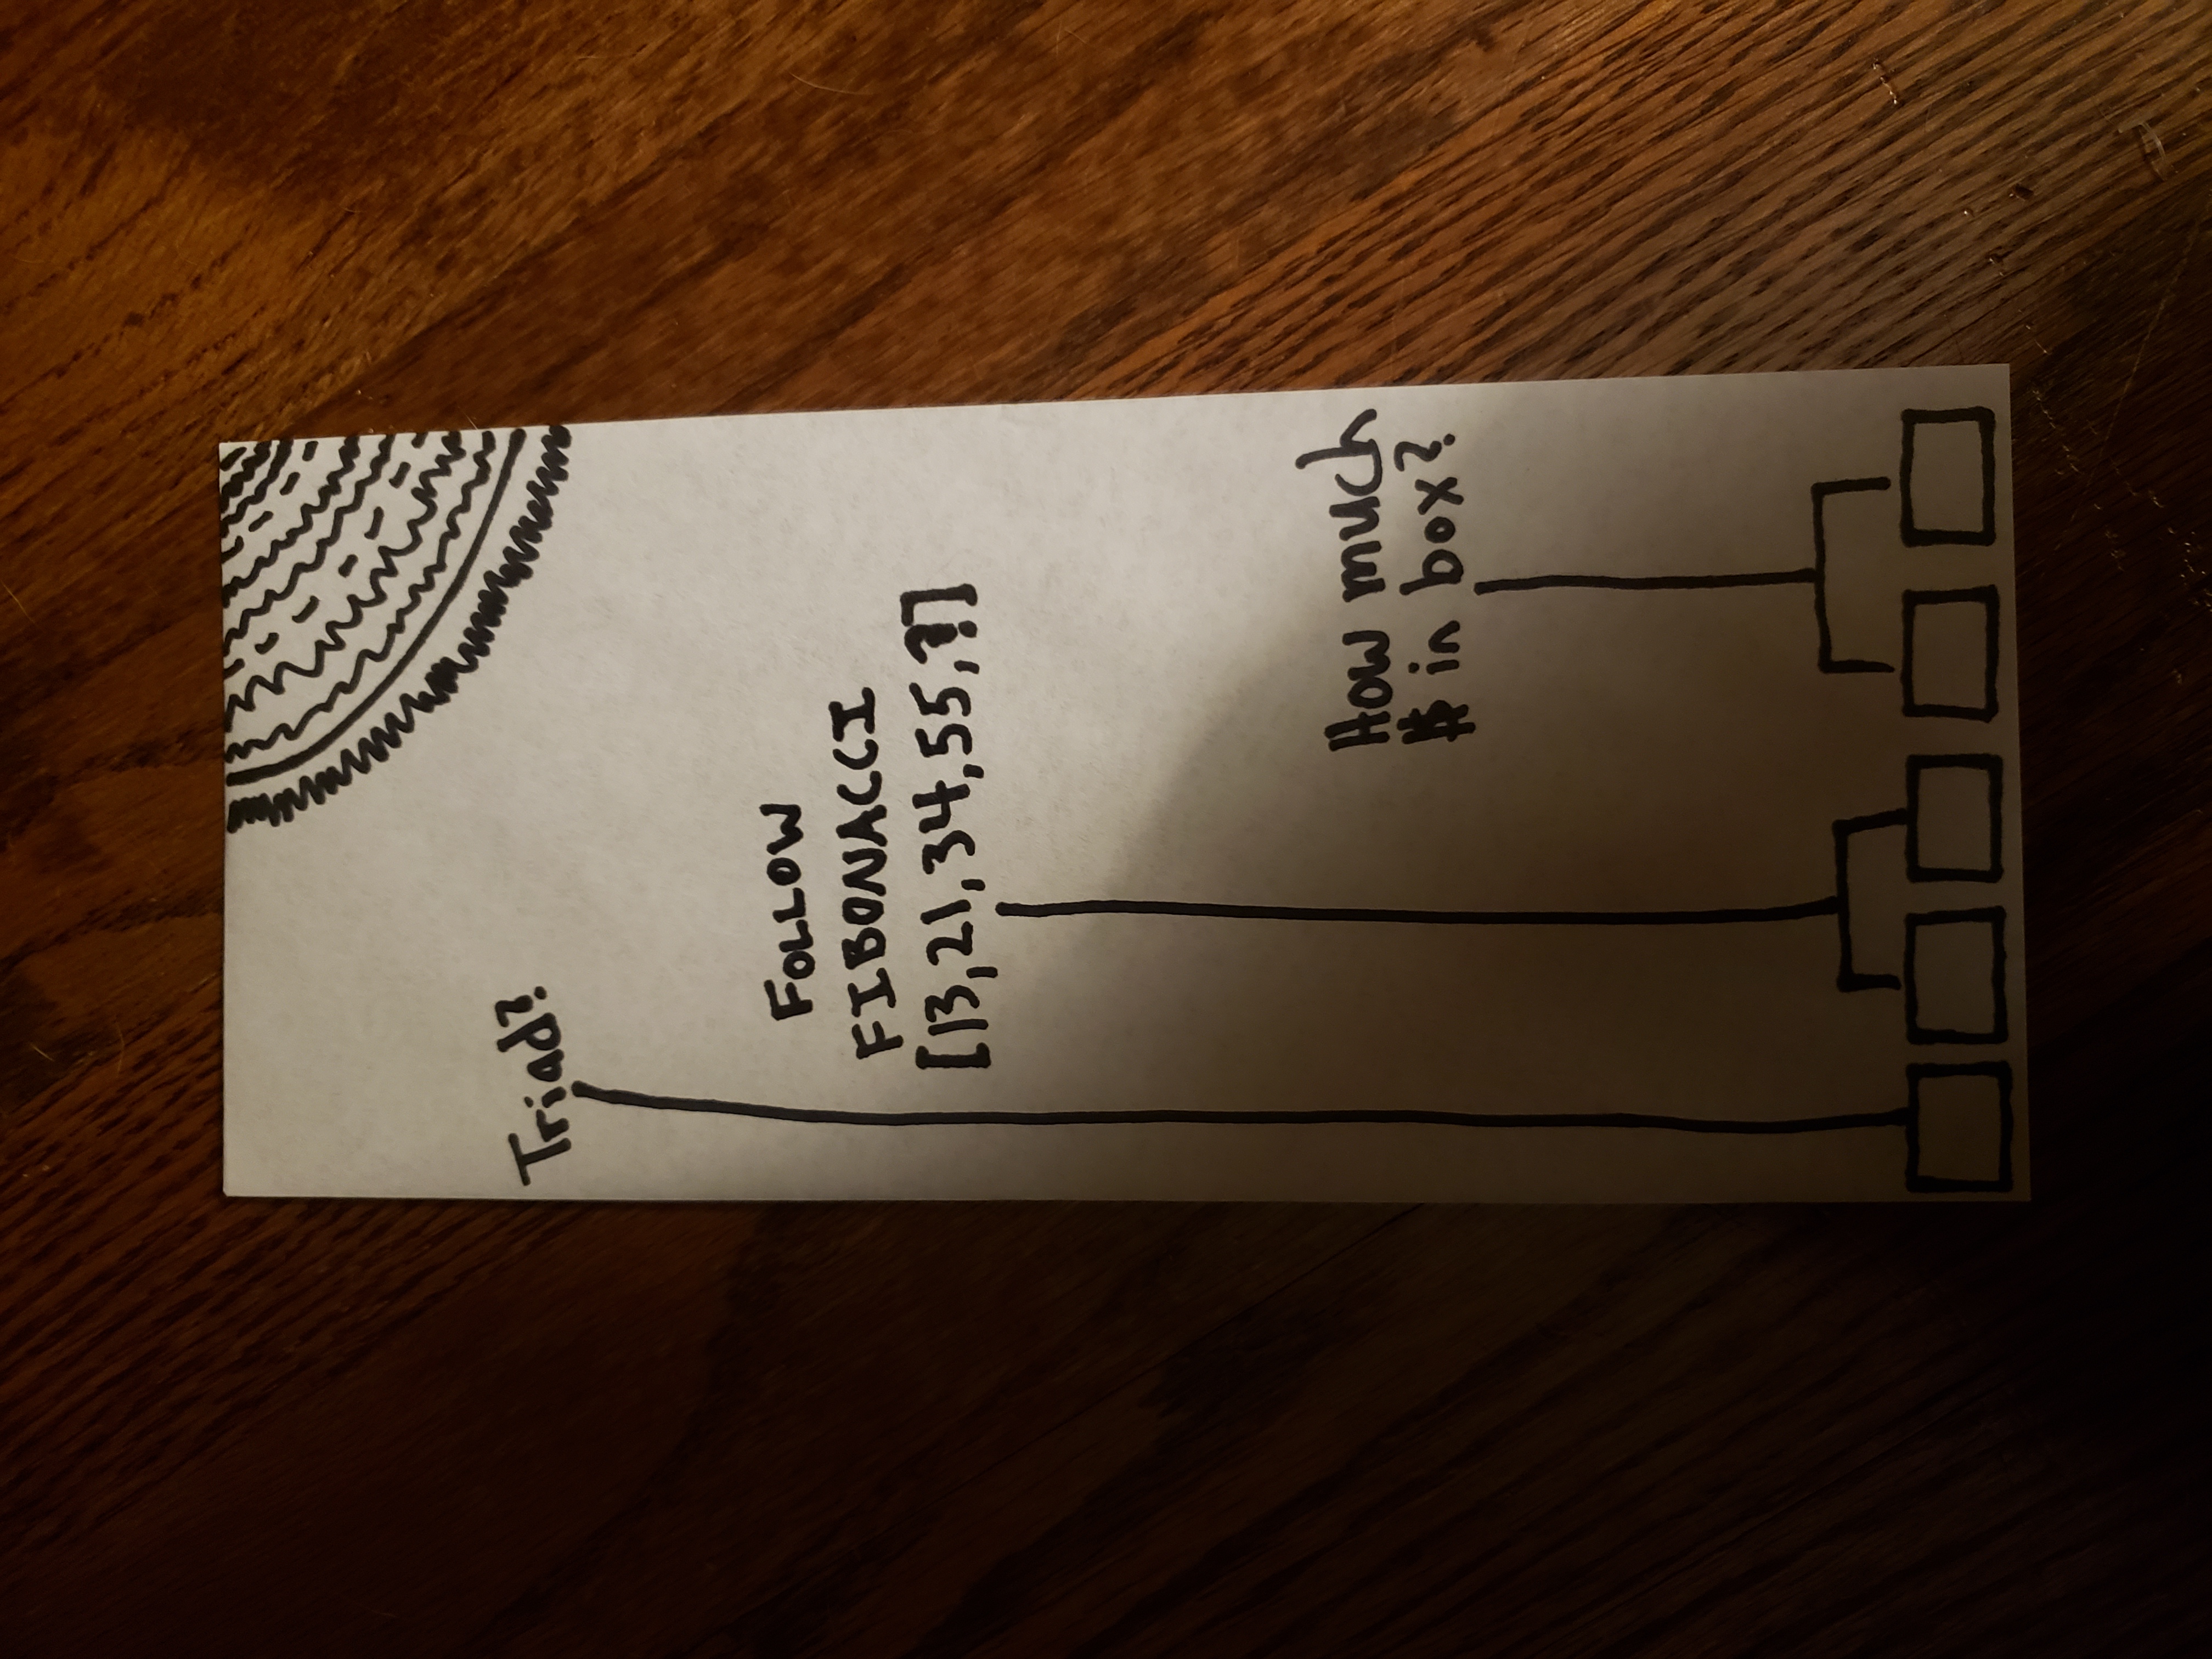 Triad?
FOLLOW
FIBONACCI
[13,21,34,55,?]
How much
$ in box?